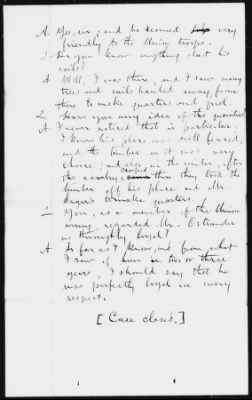 A. Yes, sir; and he seemed very
friendly to the Union troops.
Q. Do you know anything about his
rails?
A. Well, I was there, and I saw many
trees and rails hauled away, from
there to make quarters and fuel.
Q. Have you any idea of the quantity?
A. I never noticed that in particular.
I know his place was well fenced,
and the timber on it was very
choice; and also, in the winter, after
the cavalry camped there they took the
timber off his place and Mr.
to make quarters.
Q. You, as a member of the Union
army, regarded Mr. Ostrander
as thoroughly loyal?
A. So far as I know, and from what
I saw of him in two or three
years, I should say that he
was perfectly loyal in every
respect.
[Case closed.]